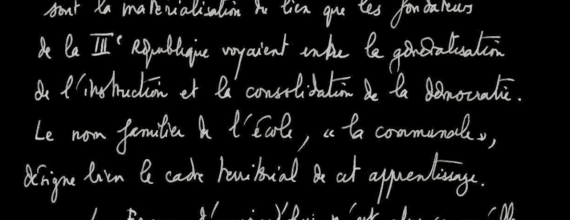 sont la matérialisation du lien que les fondateurs
de la IIIe République voyaient entre la généralisation
de l'instruction et la consolidation de la démocratie.
Le nom familier de l'école, « la communale »,
désigne bien le cadre territorial de cet apprentissage.